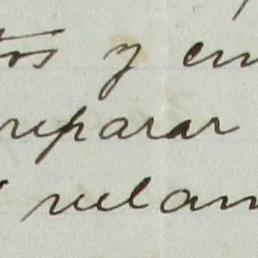 tos y em
reparar
relam